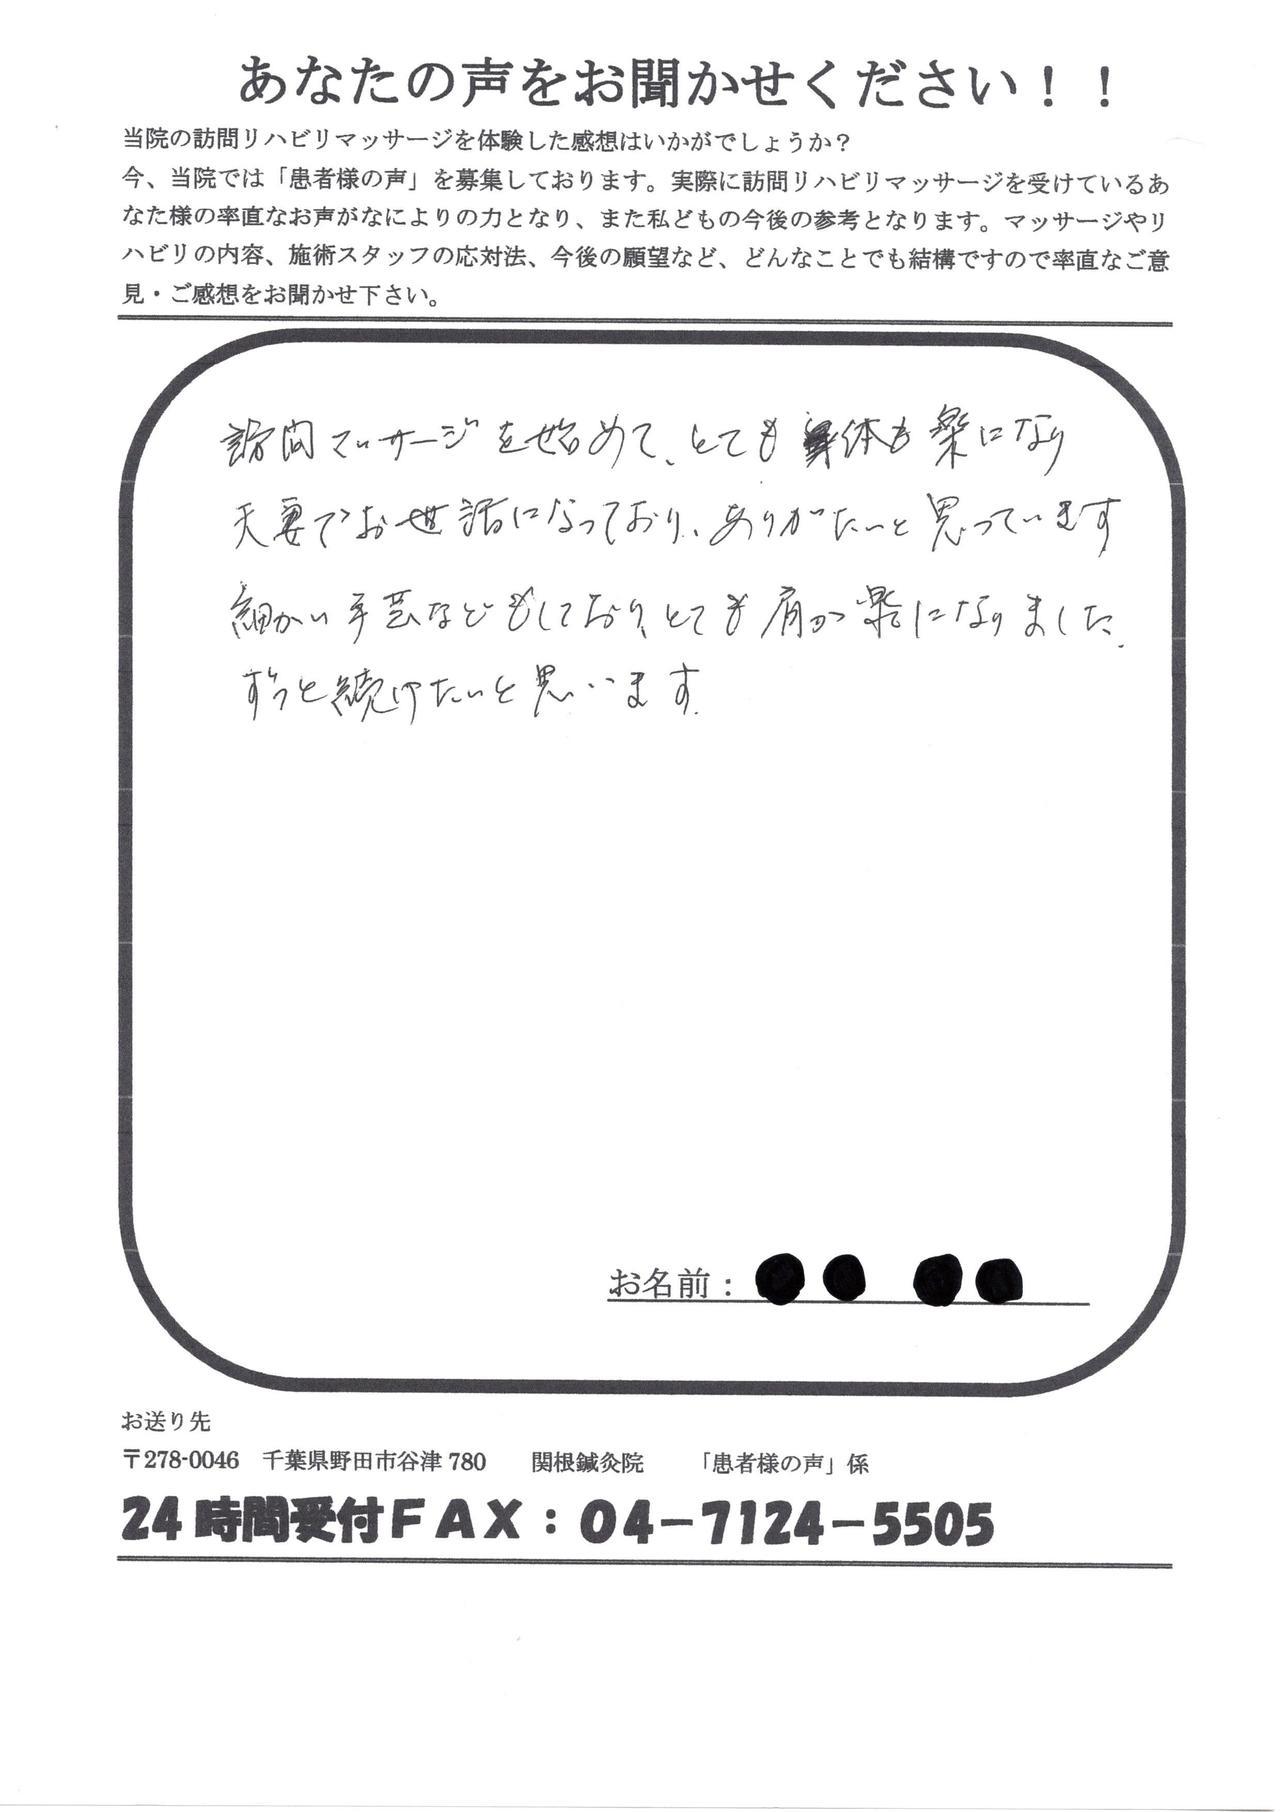 あなたの声をお聞かせください！！
当院の訪問リハビリマッサージを体験した感想はいかがでしょうか？
今、当院では「患者様の声」を募集しております。実際に訪問リハビリマッサージを受けているあ
なた様の率直なお声がなによりの力となり、また私どもの今後の参考となります。マッサージやリ
ハビリの内容、施術スタッフの応対法、今後の願望など、どんなことでも結構ですので率直なご意
見・ご感想をお聞かせ下さい。
訪問マッサージを始めて、とても身体も楽になり
夫妻でお世話になっており、ありがたいと思っています
細かい手芸などもしており、とても肩が楽になりました.
ずっと続けたいと思います.
お名前：
お送り先
〒278-0046　千葉県野田市谷津 780　　関根鍼灸院　　「患者様の声」係
24 時間受付ＦＡＸ：０４－７１２４－５５０５